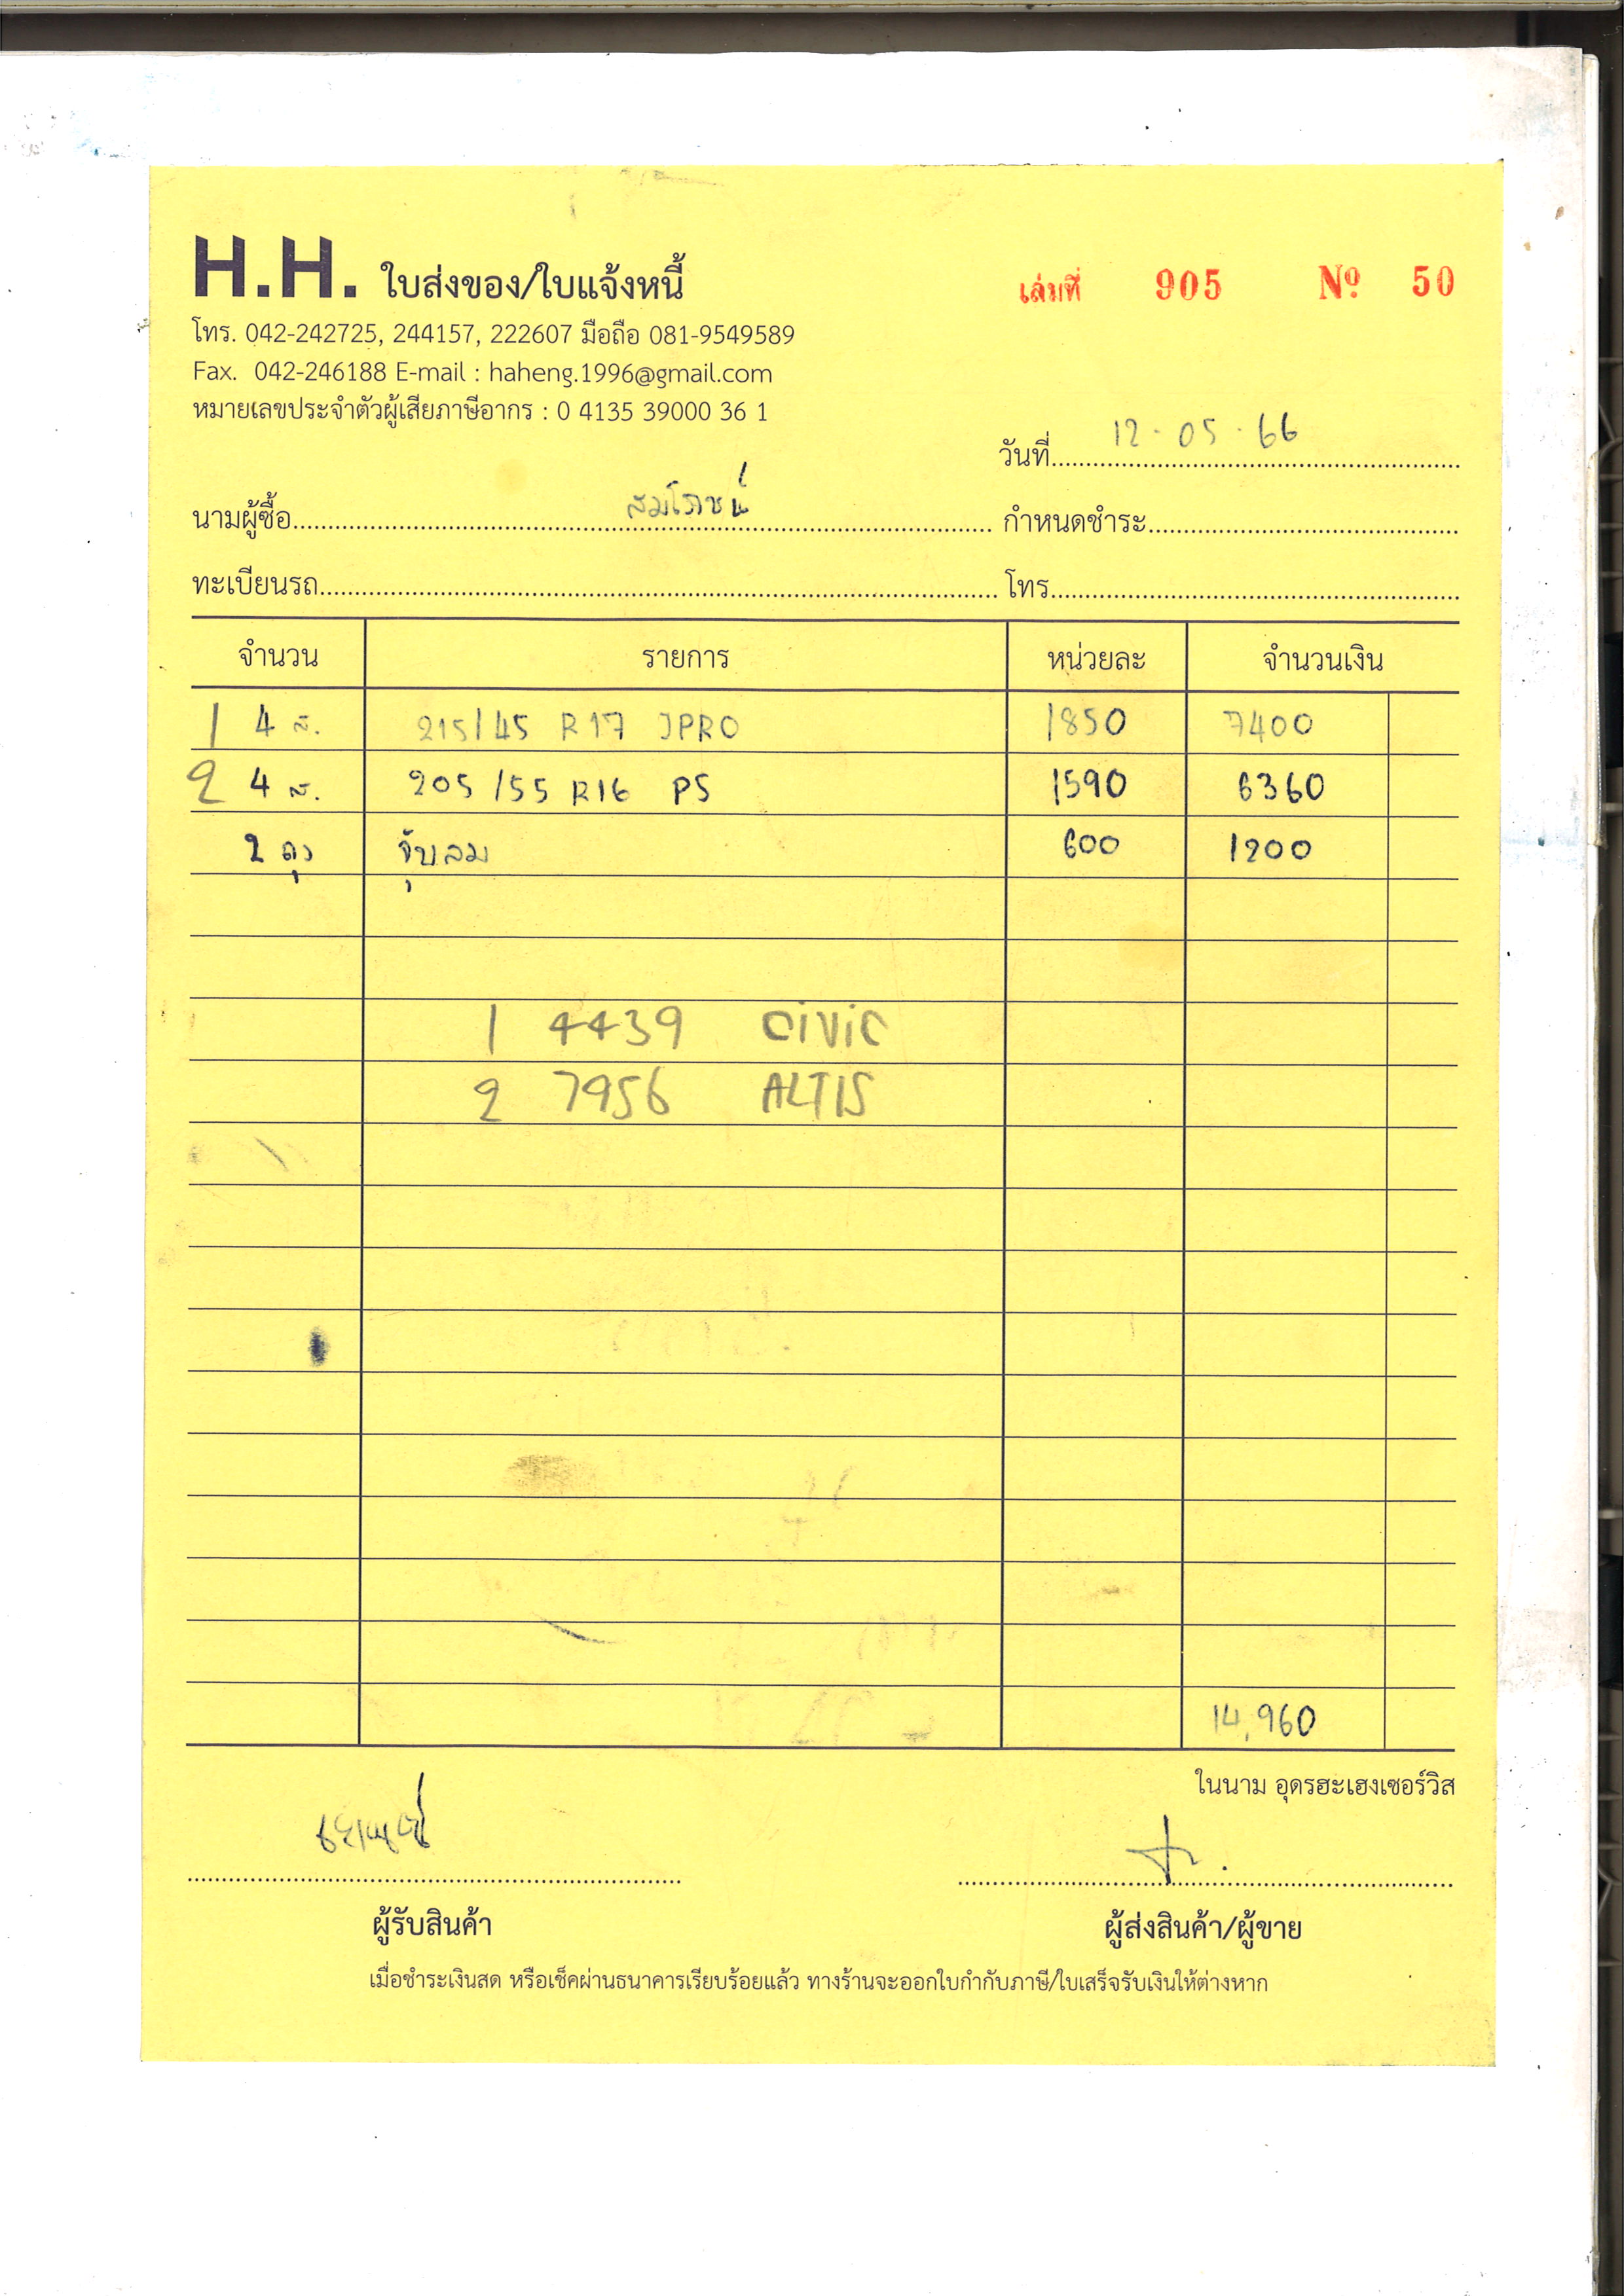 H.H. ใบส่งของ/ใบแจ้งหนี้
เล่มที่ 905 Nº 50
โทร. 042-242725, 244157, 222607 มือถือ 081-9549589
Fax. 042-246188 E-mail : haheng.1996@gmail.com
หมายเลขประจำตัวผู้เสียภาษีอากร : 0 4135 39000 36 1
วันที่ 12-05-66
นามผู้ซื้อ สมโภชน์ กำหนดชำระ
ทะเบียนรถ โทร.
จำนวน รายการ หน่วยละ จำนวนเงิน
1 4 ส. 215/45 R17 JPRO 1850 7400
2 4 ส. 205/55 R16 P5 1590 6360
2 ถุง จุ๊บลม 600 1200
1 4439 CiViC
2 7956 ALTIS
14,960
ในนาม อุดรฮะเฮงเซอร์วิส
ผู้รับสินค้า ผู้ส่งสินค้า/ผู้ขาย
เมื่อชำระเงินสด หรือเช็คผ่านธนาคารเรียบร้อยแล้ว ทางร้านจะออกใบกำกับภาษี/ใบเสร็จรับเงินให้ต่างหาก